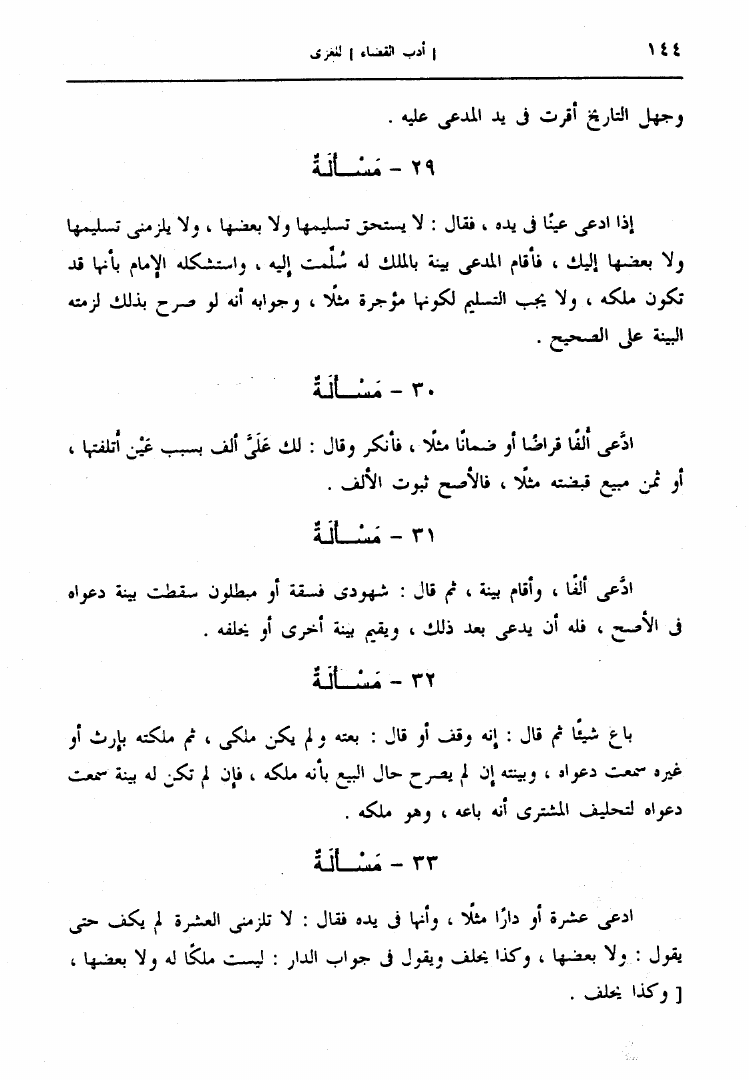 ١٤٤
[ أدب القضاء ] للغزى
وجهل التاريخ أقرت فى يد المدعى عليه .
٢٩ – مَسْـــألَـةٌ
إذا ادعى عينًا فى يده ، فقال : لا يستحق تسليمها ولا بعضها ، ولا يلزمنى تسليمها
ولا بعضها إليك ، فأقام المدعى بينة بالملك له سُلِّمت إليه ، واستشكله الإمام بأنها قد
تكون ملكه ، ولا يجب التسليم لكونها مؤجرة مثلًا ، وجوابه أنه لو صرح بذلك لزمته
البينة على الصحيح .
٣٠ – مَسْـــألَـةٌ
ادَّعى ألفًا قراضًا أو ضمانًا مثلًا ، فأنكر وقال : لك عَلَىَّ ألف بسبب عَيْن أتلفتها ،
أو ثمن مبيع قبضته مثلًا ، فالأصح ثبوت الألف .
٣١ – مَسْـــألَـةٌ
ادَّعى ألفًا ، وأقام بينة ، ثم قال : شهودى فسقة أو مبطلون سقطت بينة دعواه
فى الأصح ، فله أن يدعى بعد ذلك ، ويقيم بينة أخرى أو يحلفه .
٣٢ – مَسْـــألَـةٌ
باع شيئًا ثم قال : إنه وقف أو قال : بعته ولم يكن ملكى ، ثم ملكته بإرث أو
غيره سمعت دعواه ، وبينته إن لم يصرح حال البيع بأنه ملكه ، فإن لم تكن له بينة سمعت
دعواه لتحليف المشترى أنه باعه ، وهو ملكه .
٣٣ – مَسْـــألَـةٌ
ادعى عشرة أو دارًا مثلًا ، وأنها فى يده فقال : لا تلزمنى العشرة لم يكف حتى
يقول : ولا بعضها ، وكذا يحلف ويقول فى جواب الدار : ليست ملكًا له ولا بعضها ،
[ وكذا يحلف .